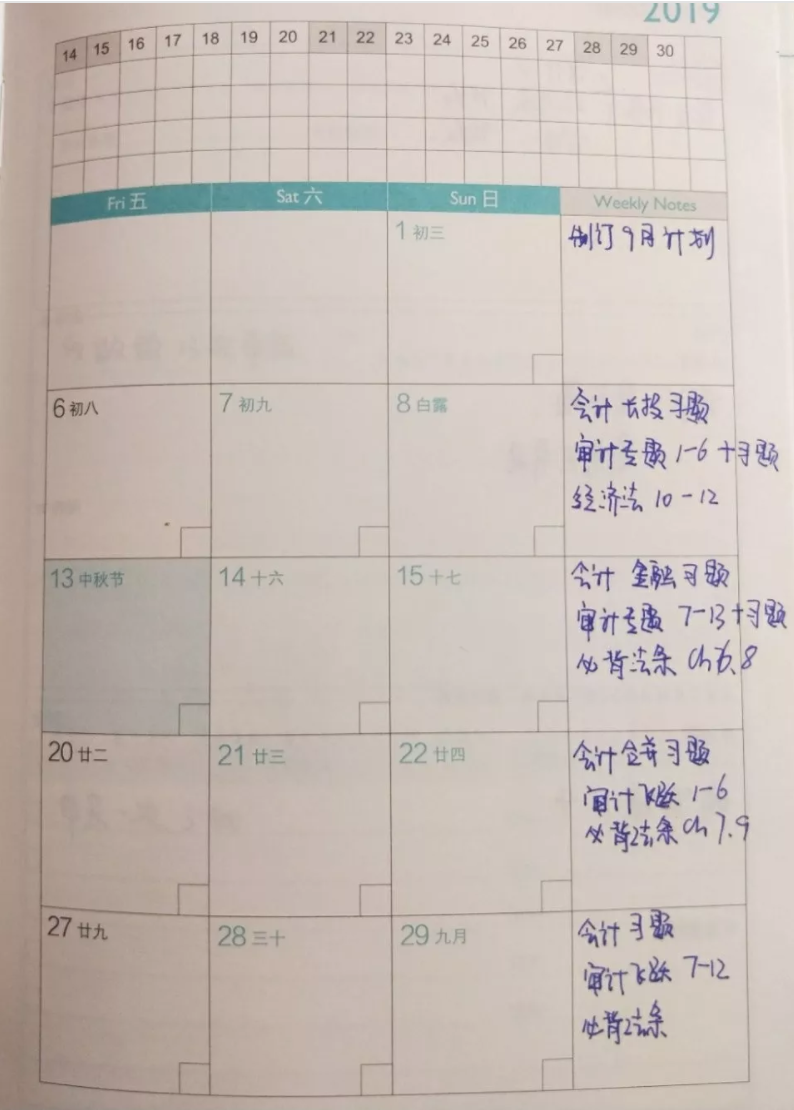 2019
14 15 16 17 18 19 20 21 22 23 24 25 26 27 28 29 30
Fri 五 Sat 六 Sun 日 Weekly Notes
1 初三
制订9月计划
6 初八 7 初九 8 白露
会计 长投习题
审计专题 1-6 +习题
经济法 10-12
13 中秋节 14 十六 15 十七
会计 金融习题
审计专题 7-13 +习题
必背法条 Ch6.8
20 廿二 21 廿三 22 廿四
会计合并习题
审计飞跃 1-6
必背法条 Ch7.9
27 廿九 28 三十 29 九月
会计习题
审计飞跃 7-12
必背法条